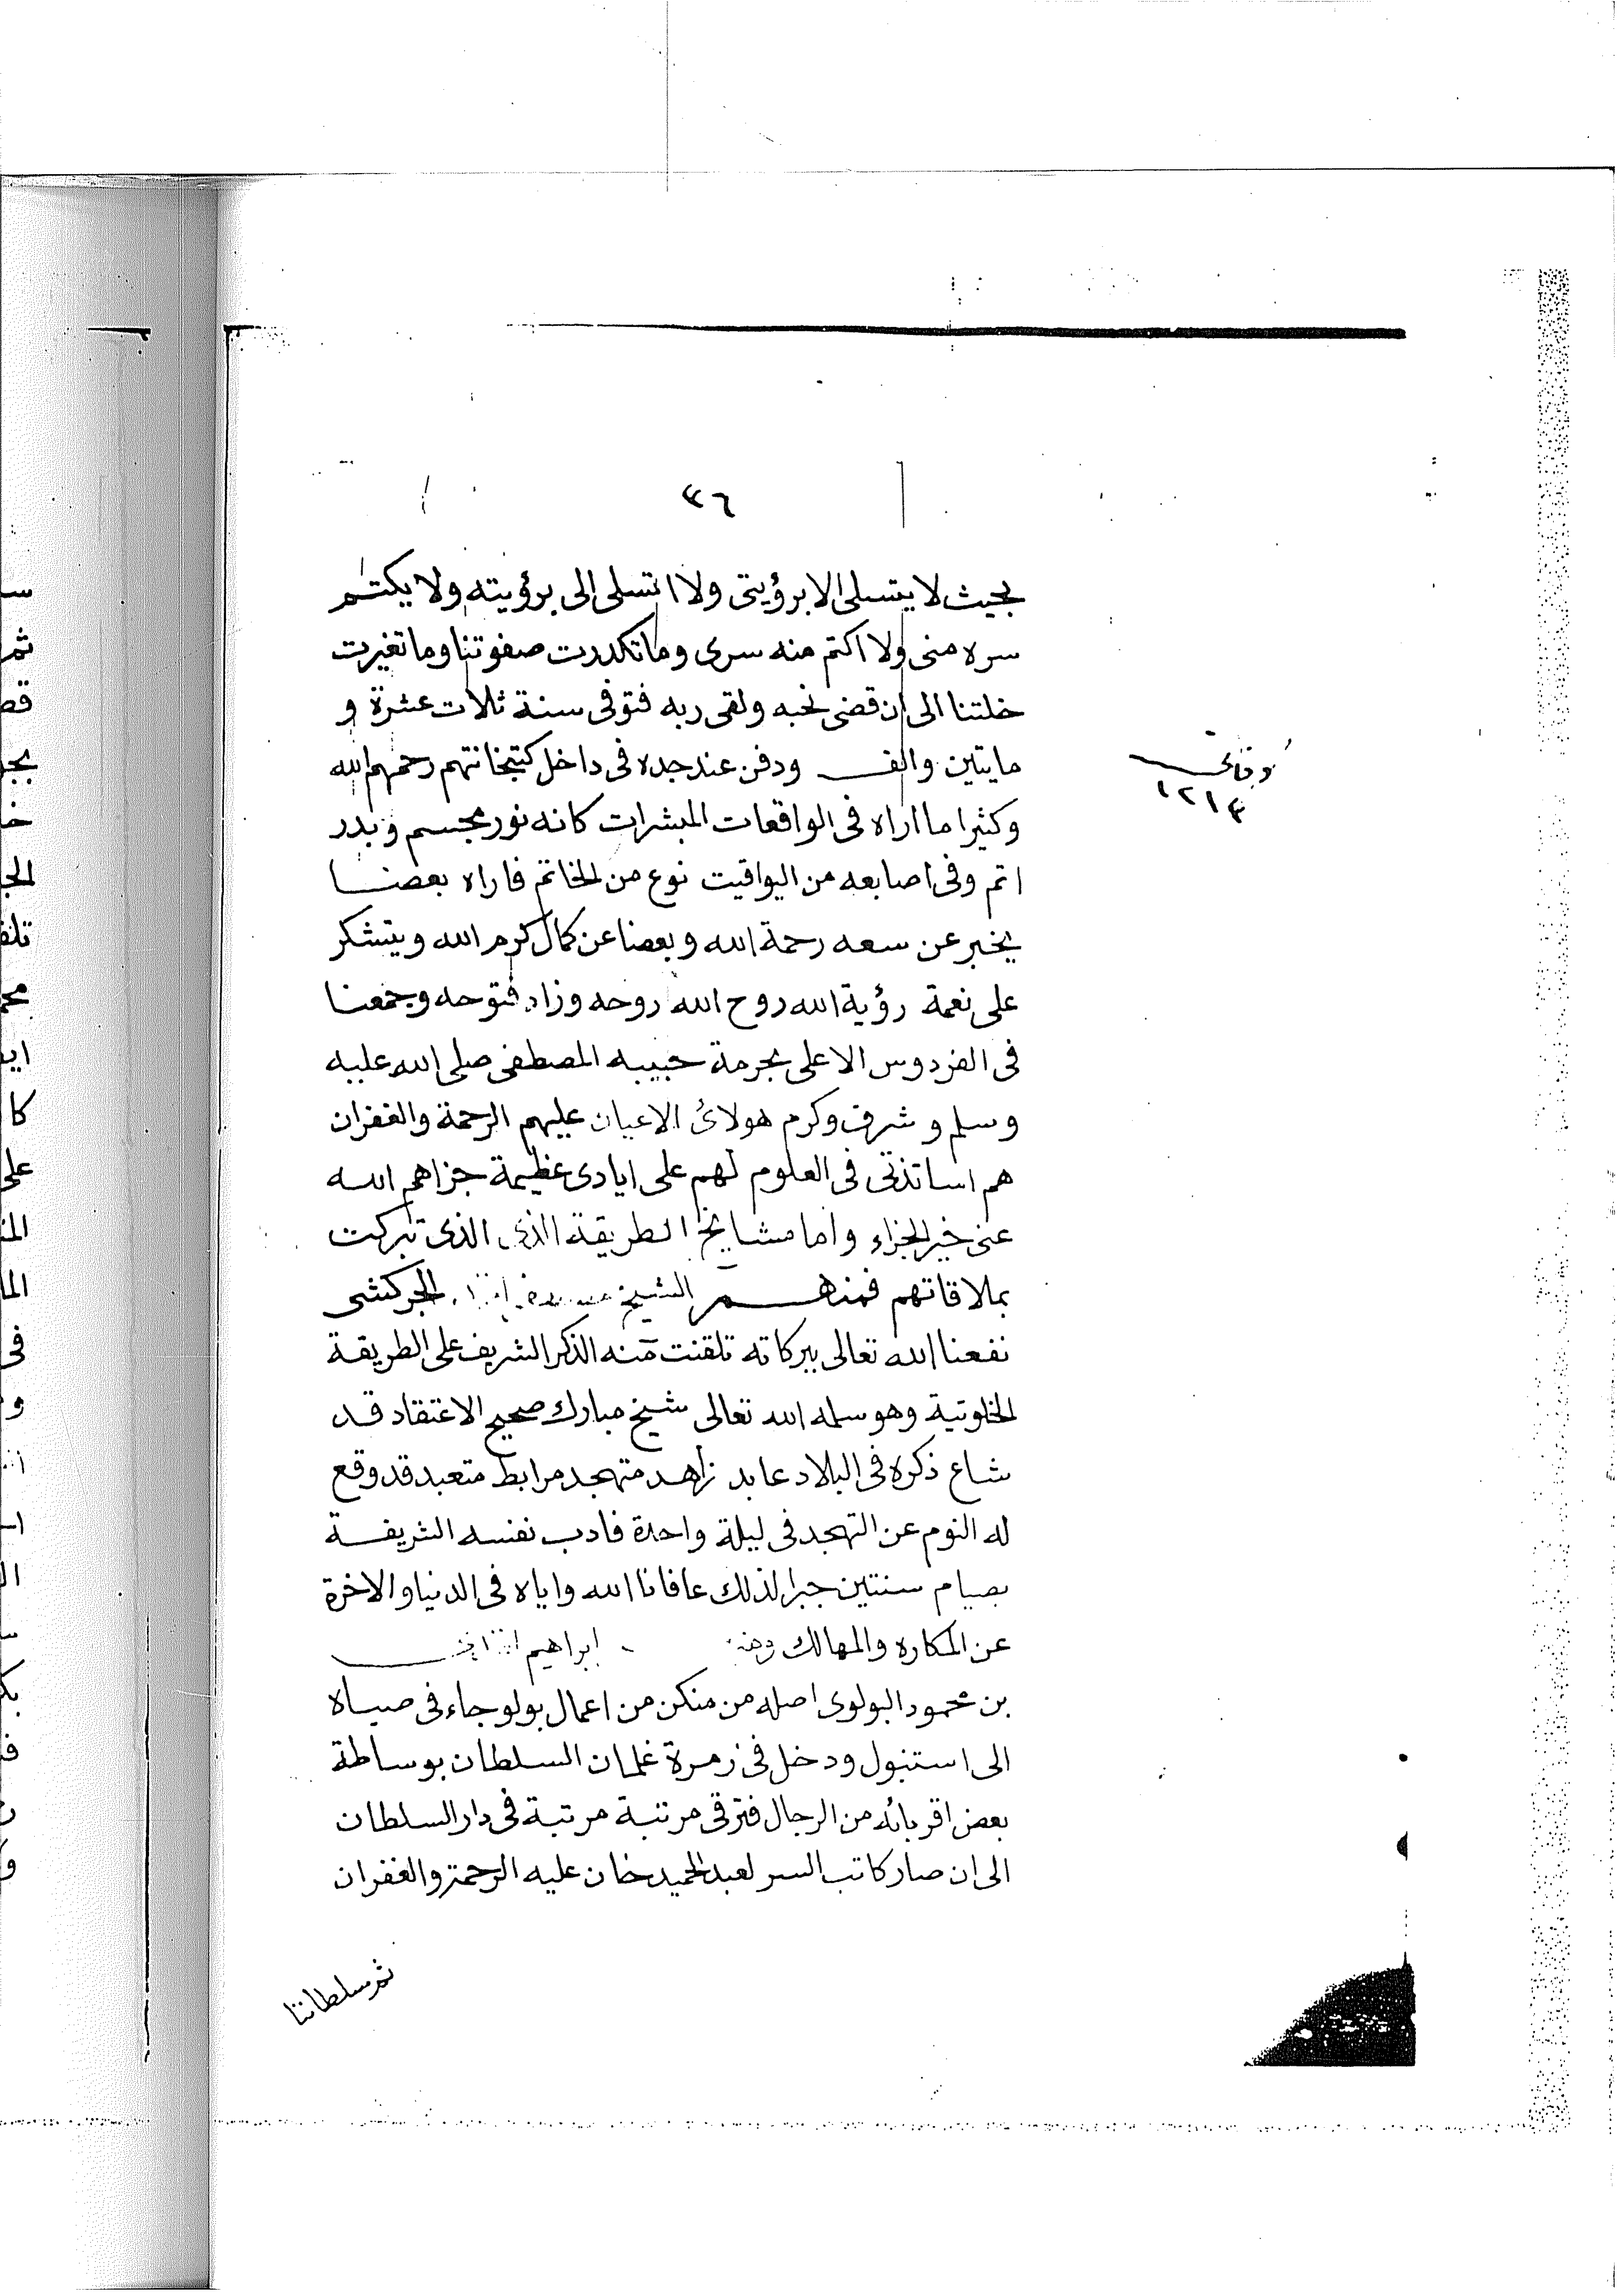 ٣٦
بحيث لا يتسلى الا برؤيتى ولا اتسلى الى برؤيته ولا يكتم
سره منى ولا اكتم منه سرى وما تكدرت صفوتنا وما تغيرت
خلتنا الى ان قضى نحبه ولقى ربه فتوفى سنة ثلاث عشرة و
مايتين والف ودفن عند جده فى داخل كتبخانتهم رحمهم الله
وفاتى
١٢١٣
وكثيرا ما اراه فى الواقعات المبشرات كانه نور مجسم وبدر
اتم وفى اصابعه من اليواقيت نوع من الخاتم فاراه بعضا
يخبر عن سعه رحمة الله وبعضا عن كمال كرم الله ويتشكر
على نعمة رؤية الله روح الله روحه وزاد فتوحه وجمعنا
فى الفردوس الاعلى بحرمة حبيبه المصطفى صلى الله عليه
وسلم وشرف وكرم هولائ الاعيان عليهم الرحمة والغفران
هم اساتذتى فى العلوم لهم على ايادى عظيمة جزاهم الله
عنى خير الجزاء واما مشايخ الطريقة الذى الذى تبركت
بملاقاتهم فمنهم الشيخ الجركشى
نفعنا الله تعالى ببركاته تلقنت منه الذكر الشريف على الطريقة
الخلوتية وهو سلمه الله تعالى شيخ مبارك صحيح الاعتقاد قد
شاع ذكره فى البلاد عابد زاهد متهجد مرابط متعبد قد وقع
له النوم عن التهجد فى ليلة واحدة فادب نفسه الشريفة
بصيام سنتين جبرا لذلك عافانا الله واياه فى الدنيا والاخرة
عن المكاره والمهالك ابراهيم
بن محمود البولوى اصله من منكن من اعمال بولو جاء فى صباه
الى استنبول ودخل فى زمرة غلمان السلطان بوساطة
بعض اقربائه من الرجال فترقى مرتبة مرتبة فى دار السلطان
الى ان صار كاتب السر لعبد الحميد خان عليه الرحمة والغفران
ثم سلطاننا